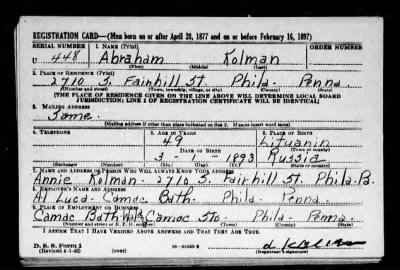 REGISTRATION CARD—(Men born on or after April 28, 1877 and on or before February 16, 1897)
SERIAL NUMBER 1. NAME (Print) ORDER NUMBER
U 448 Abraham Kolman
(First) (Middle) (Last)
2. PLACE OF RESIDENCE (Print)
2710 S. Fairhill St. Phila. Penna.
(Number and street) (Town, township, village, or city) (County) (State)
[THE PLACE OF RESIDENCE GIVEN ON THE LINE ABOVE WILL DETERMINE LOCAL BOARD
JURISDICTION; LINE 2 OF REGISTRATION CERTIFICATE WILL BE IDENTICAL]
3. MAILING ADDRESS
Same.
[Mailing address if other than place indicated on line 2. If same insert word same]
4. TELEPHONE 5. AGE IN YEARS 6. PLACE OF BIRTH
49 Lituanin
DATE OF BIRTH (Town or county)
3 - 1 - 1893 Russia
(Exchange) (Number) (Mo.) (Day) (Yr.) (State or country)
7. NAME AND ADDRESS OF PERSON WHO WILL ALWAYS KNOW YOUR ADDRESS
Annie Kolman - 2710 S. Fairhill St. Phila. Pa.
8. EMPLOYER'S NAME AND ADDRESS
Al Luca - Camac Bath - Phila - Penna.
9. PLACE OF EMPLOYMENT OR BUSINESS
Camac Bath Camac Sts. Phila - Penna.
(Number and street or R. F. D. number) (Town) (County) (State)
I AFFIRM THAT I HAVE VERIFIED ABOVE ANSWERS AND THAT THEY ARE TRUE.
D. S. S. Form 1
(Revised 4-1-42) (over)
(Registrant's signature)